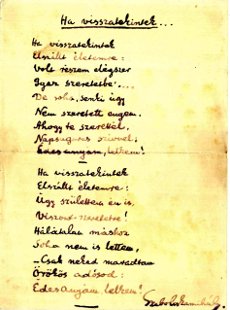 Ha visszatekintek...
Ha visszatekintek
Elszállt életemre:
Volt részem elégszer
Igaz szeretetbe....
De soha, senki úgy
Nem szeretett engem,
Ahogy te szerettél,
Napsugaras szívvel,
Édes anyám, lelkem!
Ha visszatekintek
Elszállt életemre:
Úgy születtem én is,
Viszont szeretetre!
Hálátlan máshoz
Soha nem is lettem,
..Csak neked maradtam
Örökös adósod:
Édes anyám lelkem!
Szabolcska Mihály.